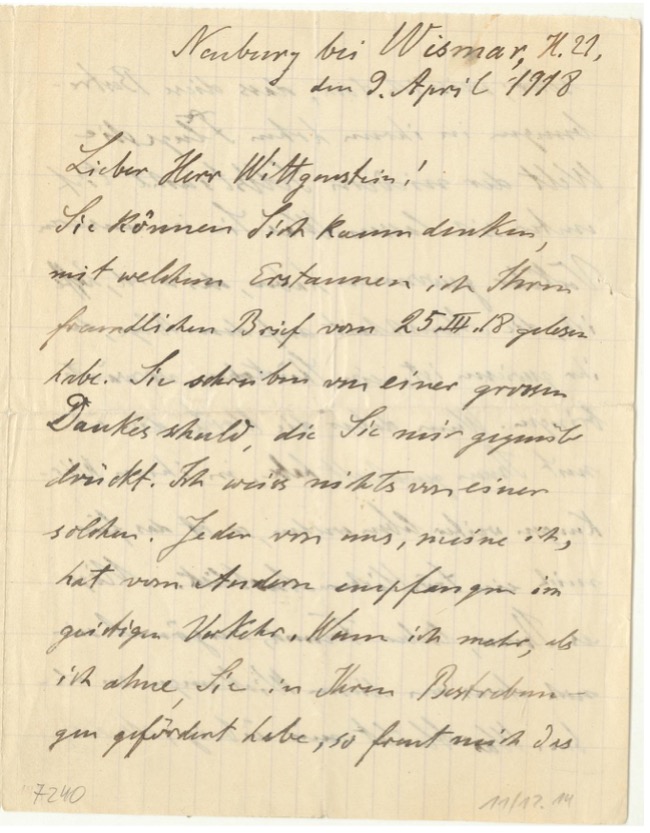 Neuburg bei Wismar, H. 21,
den 9. April 1918
Lieber Herr Wittgenstein!
Sie können Sich kaum denken,
mit welchem Erstaunen ich Ihren
freundlichen Brief vom 25.III.18 gelesen
habe. Sie schreiben von einer grossen
Dankesschuld, die Sie mir gegenüb
drückt. Ich weiss nichts von einer
solchen. Jeder von uns, meine ich,
hat vom Andern empfangen im
geistigen Verkehr. Wenn ich mehr, als
ich ahne, Sie in Ihren Bestrebun-
gen gefördert habe, so freut mich das
7240
11/12.14